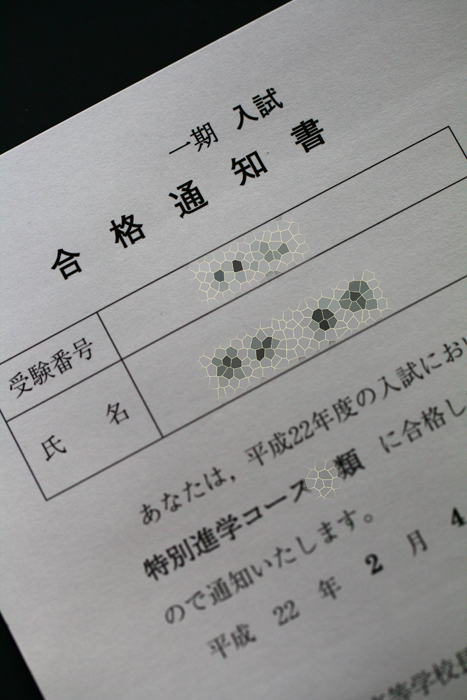 一期 入試
合格通知書
受験番号
氏 名
あなたは，平成22年度の入試にお
特別進学コース 類 に合格し
ので通知いたします。
平成 22 年 2 月 4
等学校長